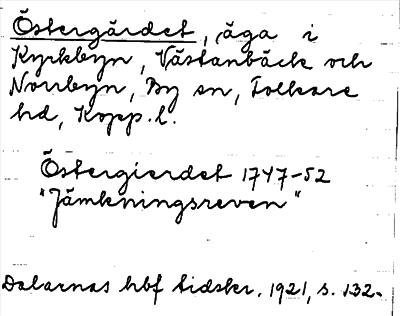 Östergärdet, äga i
Kyrkbyn, Västanbäck och
Norrbyn, By sn, Folkare
hd, Kopp. l.
Östergierdet 1747-52
"Jämkningsreven"
Dalarnas hbf tidskr. 1921, s. 132.